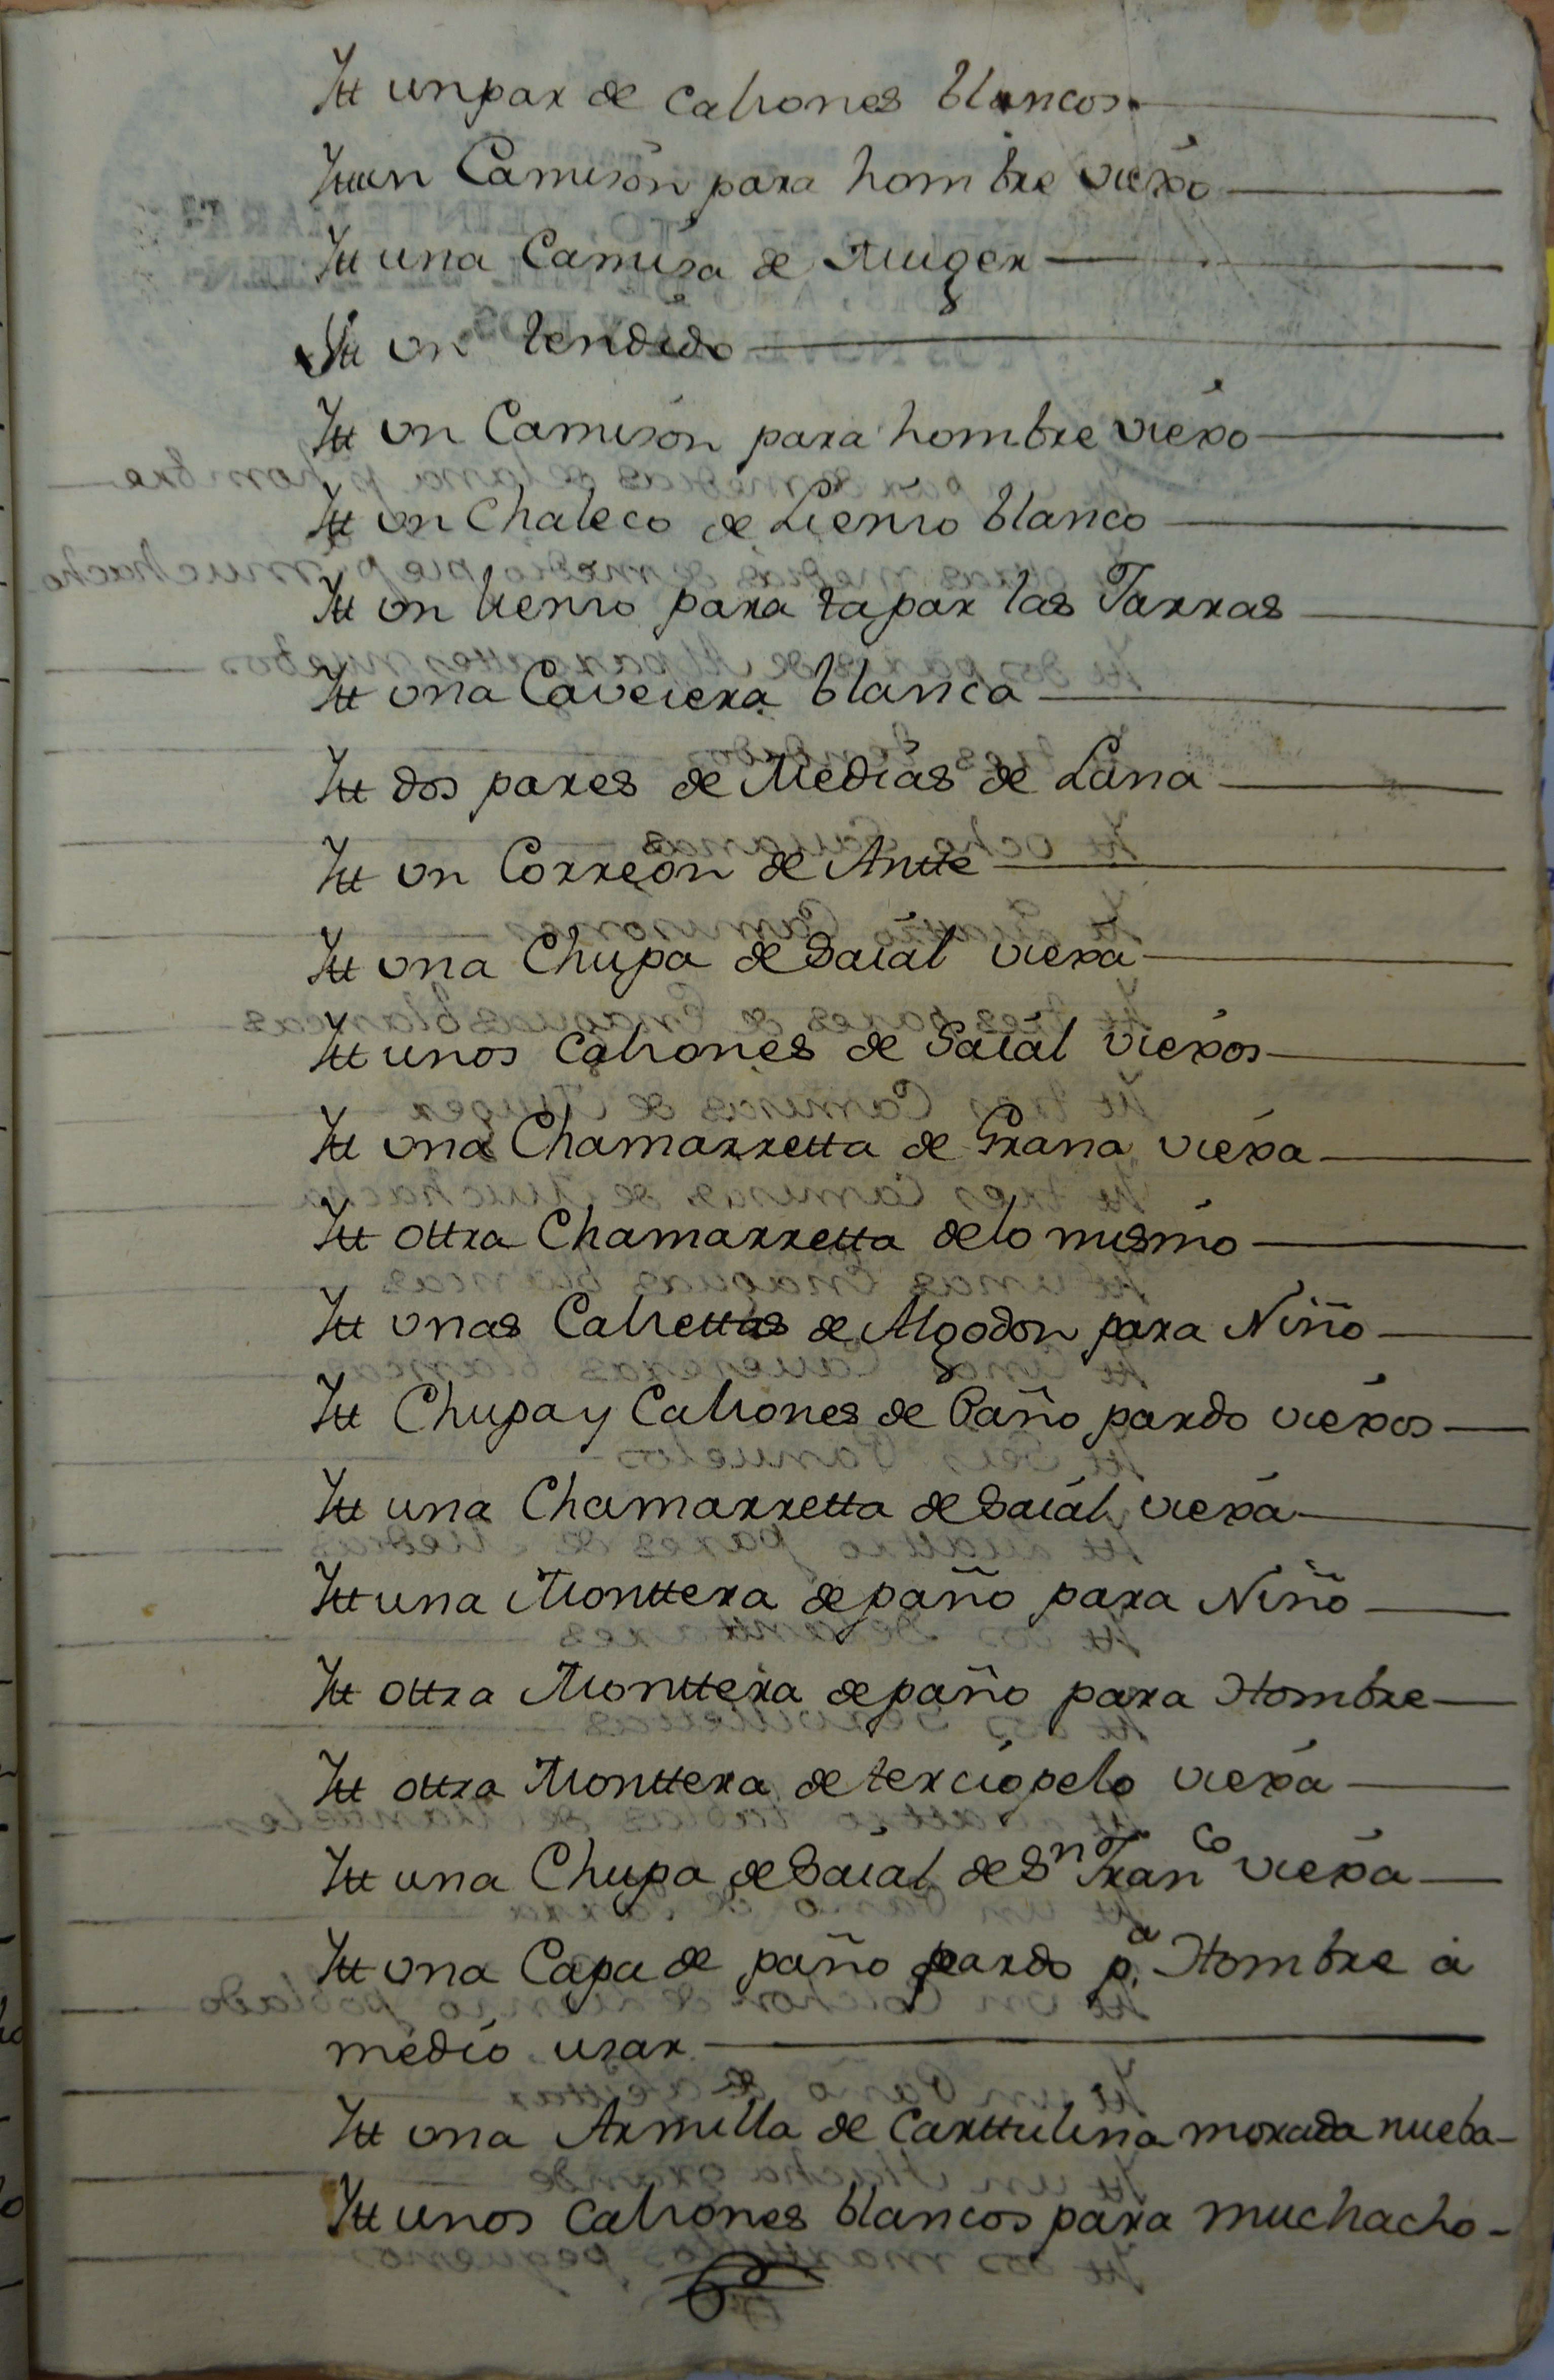 Itt un par de calzones blancos
Itt un Camisón para hombre viexo
Itt una Camisa de Muger
Itt un tendido
Itt un Camisón para hombre viexo
Itt un Chaleco de Lienzo blanco
Itt un lienzo para tapar las Jarras
Itt una Cavezera blanca
Itt dos pares de Medias de Lana
Itt un Correon de Antte
Itt una Chupa de Saial viexa
Itt unos Calzones de Saial viexos
Itt una Chamarretta de Grana viexa
Itt ottra Chamarretta de lo mismo
Itt unas Calzettas de Algodon para Niño
Itt Chupa y Calzones de Paño pardo viexos
Itt una Chamarretta de Saial viexa
Itt una Monttera de paño para Niño
Itt ottra Monttera de paño para Hombre
Itt ottra Monttera de terciopelo viexa
Itt una Chupa de Saial de Sn Franco viexa
Itt una Capa de paño pardo pa. Hombre a
medio usar
Itt una Armilla de Carttulina morada nueba
Itt unos Calzones blancos para muchacho